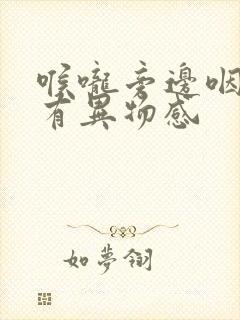 喉嚨旁邊咽
有異物感
如夢翎